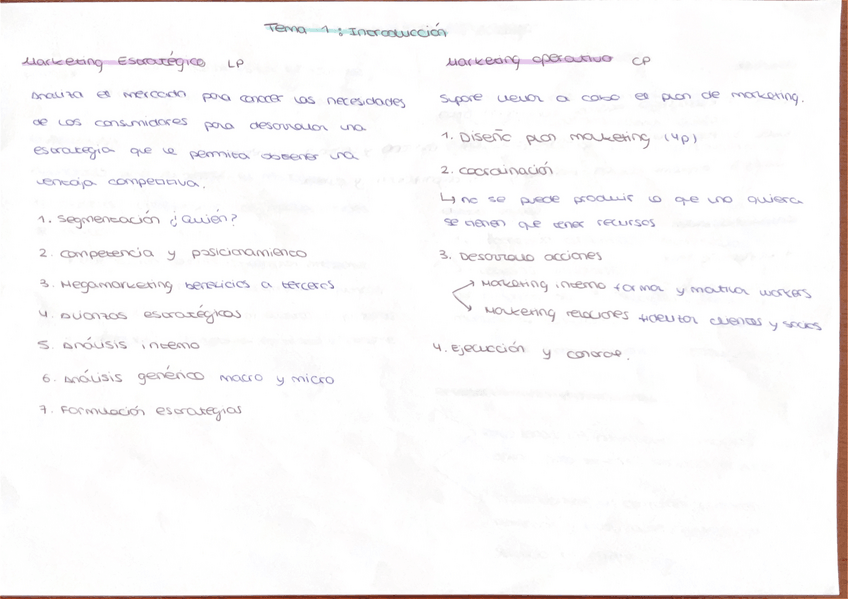 Tema 1: Introducción
Marketing Estratégico LP
Analiza el mercado para conocer las necesidades
de los consumidores para desarrollar una
estrategia que le permita obtener una
ventaja competitiva.
1. Segmentación ¿Quién?
2. Competencia y posicionamiento
3. Megamarketing beneficios a terceros
4. Alianzas estratégicas
5. Análisis interno
6. Análisis genérico macro y micro
7. Formulación estrategias
Marketing operativo CP
Supone llevar a cabo el plan de marketing.
1. Diseño plan marketing (4p)
2. Coordinación
↳ no se puede producir lo que uno quiera
se tienen que tener recursos
3. Desarrollo acciones
→ Marketing interno formar y motivar workers
→ Marketing relaciones fidelizar clientes y socios
4. Ejecución y control.